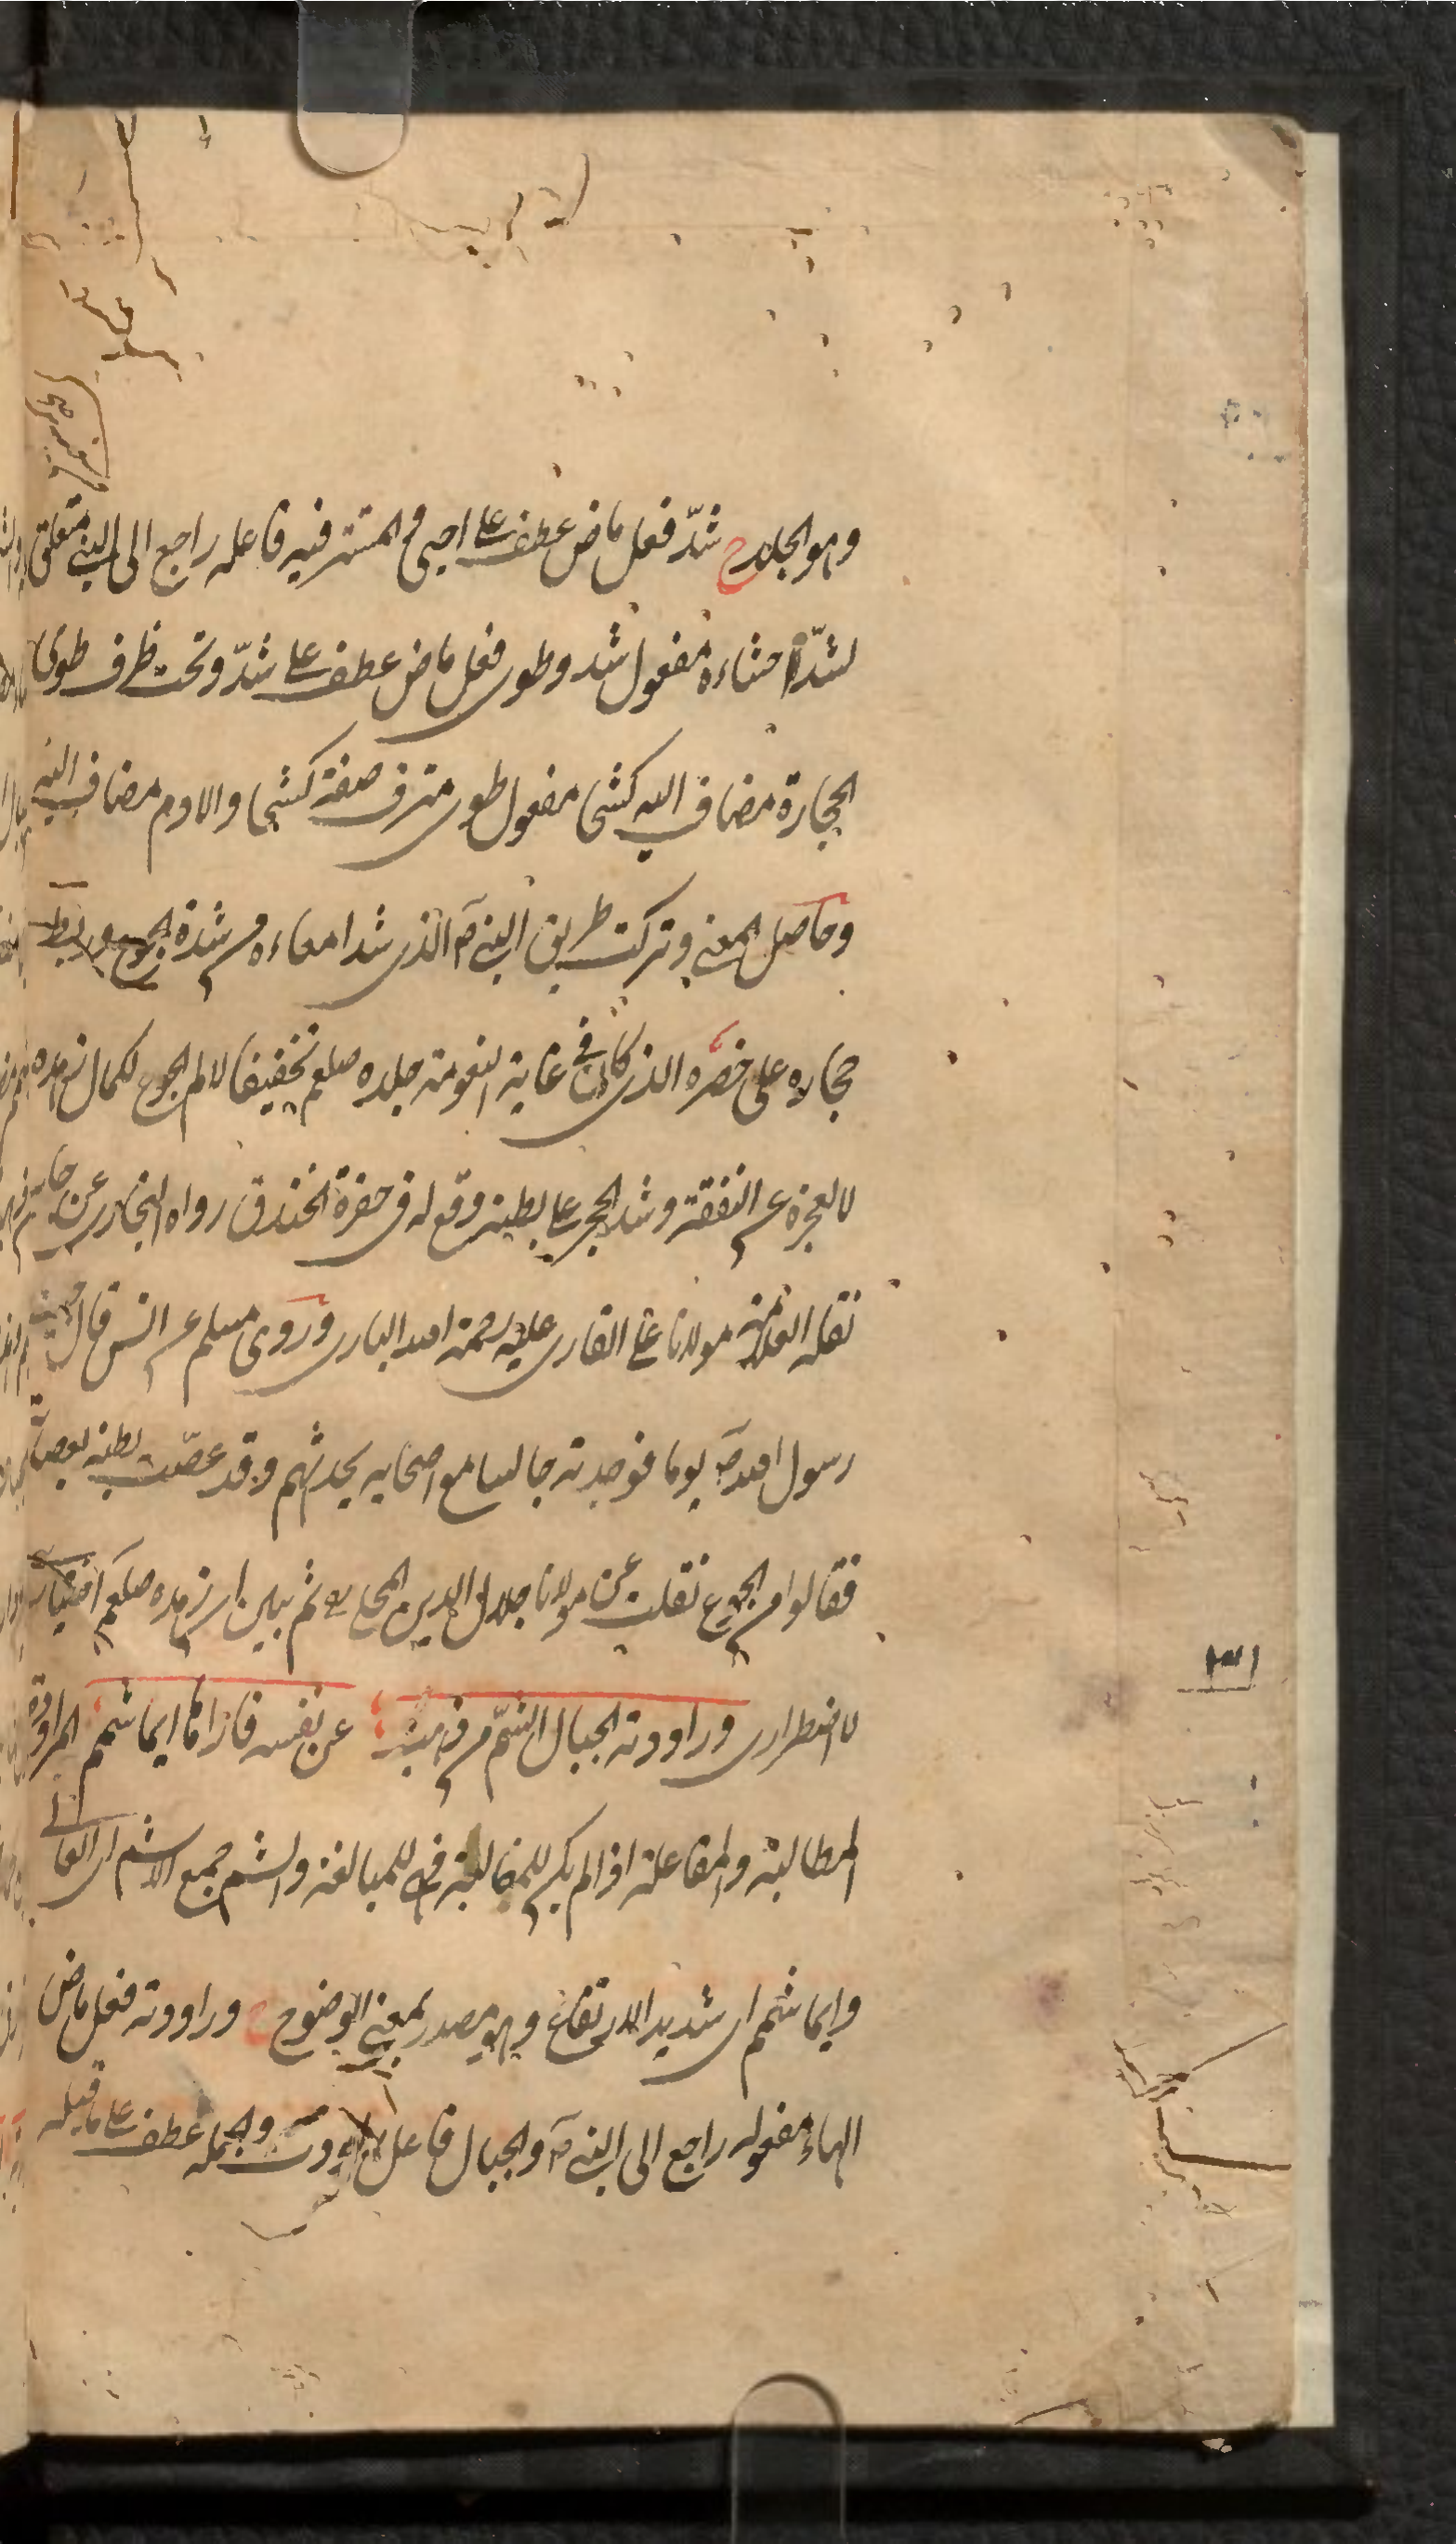 وهو الجلد ح شدّ فعل ماض عطف على احيى و المستتر فيه فاعله راجع الى النبي متعلق
لشدّ احشاءه مفعول شد وطوى فعل ماض عطف على شدّ وتحت ظرف طوى
الحجارة مضاف اليه كشحا مفعول طوى مترف صفة كشحا والادم مضاف اليه
وحاصل المعنى وتركت طريق النبي ص الذى شد امعاءه من شدة الجوع وربط
حجاره على خصره الذى كان في غاية النعومة جلده صلعم تخفيفا لالم الجوع لكمال زهده
لا لعجزه عن النفقة وشد الحجر على بطنه وقع له فى حفرة الخندق رواه البخارى عن جابر
نقله العلامة مولانا على القارى عليه رحمة الله البارى وروى مسلم عن انس قال جئت
رسول الله ص يوما فوجدته جالسا مع اصحابه يحدثهم وقد عصّب بطنه بعصابة
فقالوا من الجوع نقلت عن مولانا جلال الدين المحلى ثم بين ان زهده صلعم اختيارى
لا اضطرارى وراودته الجبال الشمّ من ذهب عن نفسه فاراها ايما شمم المراودة
المطالبة والمفاعلة اذا لم يكن للمغالبة فهى للمبالغة والشم جمع الاشم اى العالى
وايما شمم اى شديد الارتفاع وهو مصدر بمعنى الوضوح وراودته فعل ماض
الهاء مفعوله راجع الى النبي ص والجبال فاعل راودت والجملة عطف على ما قبله
٣١